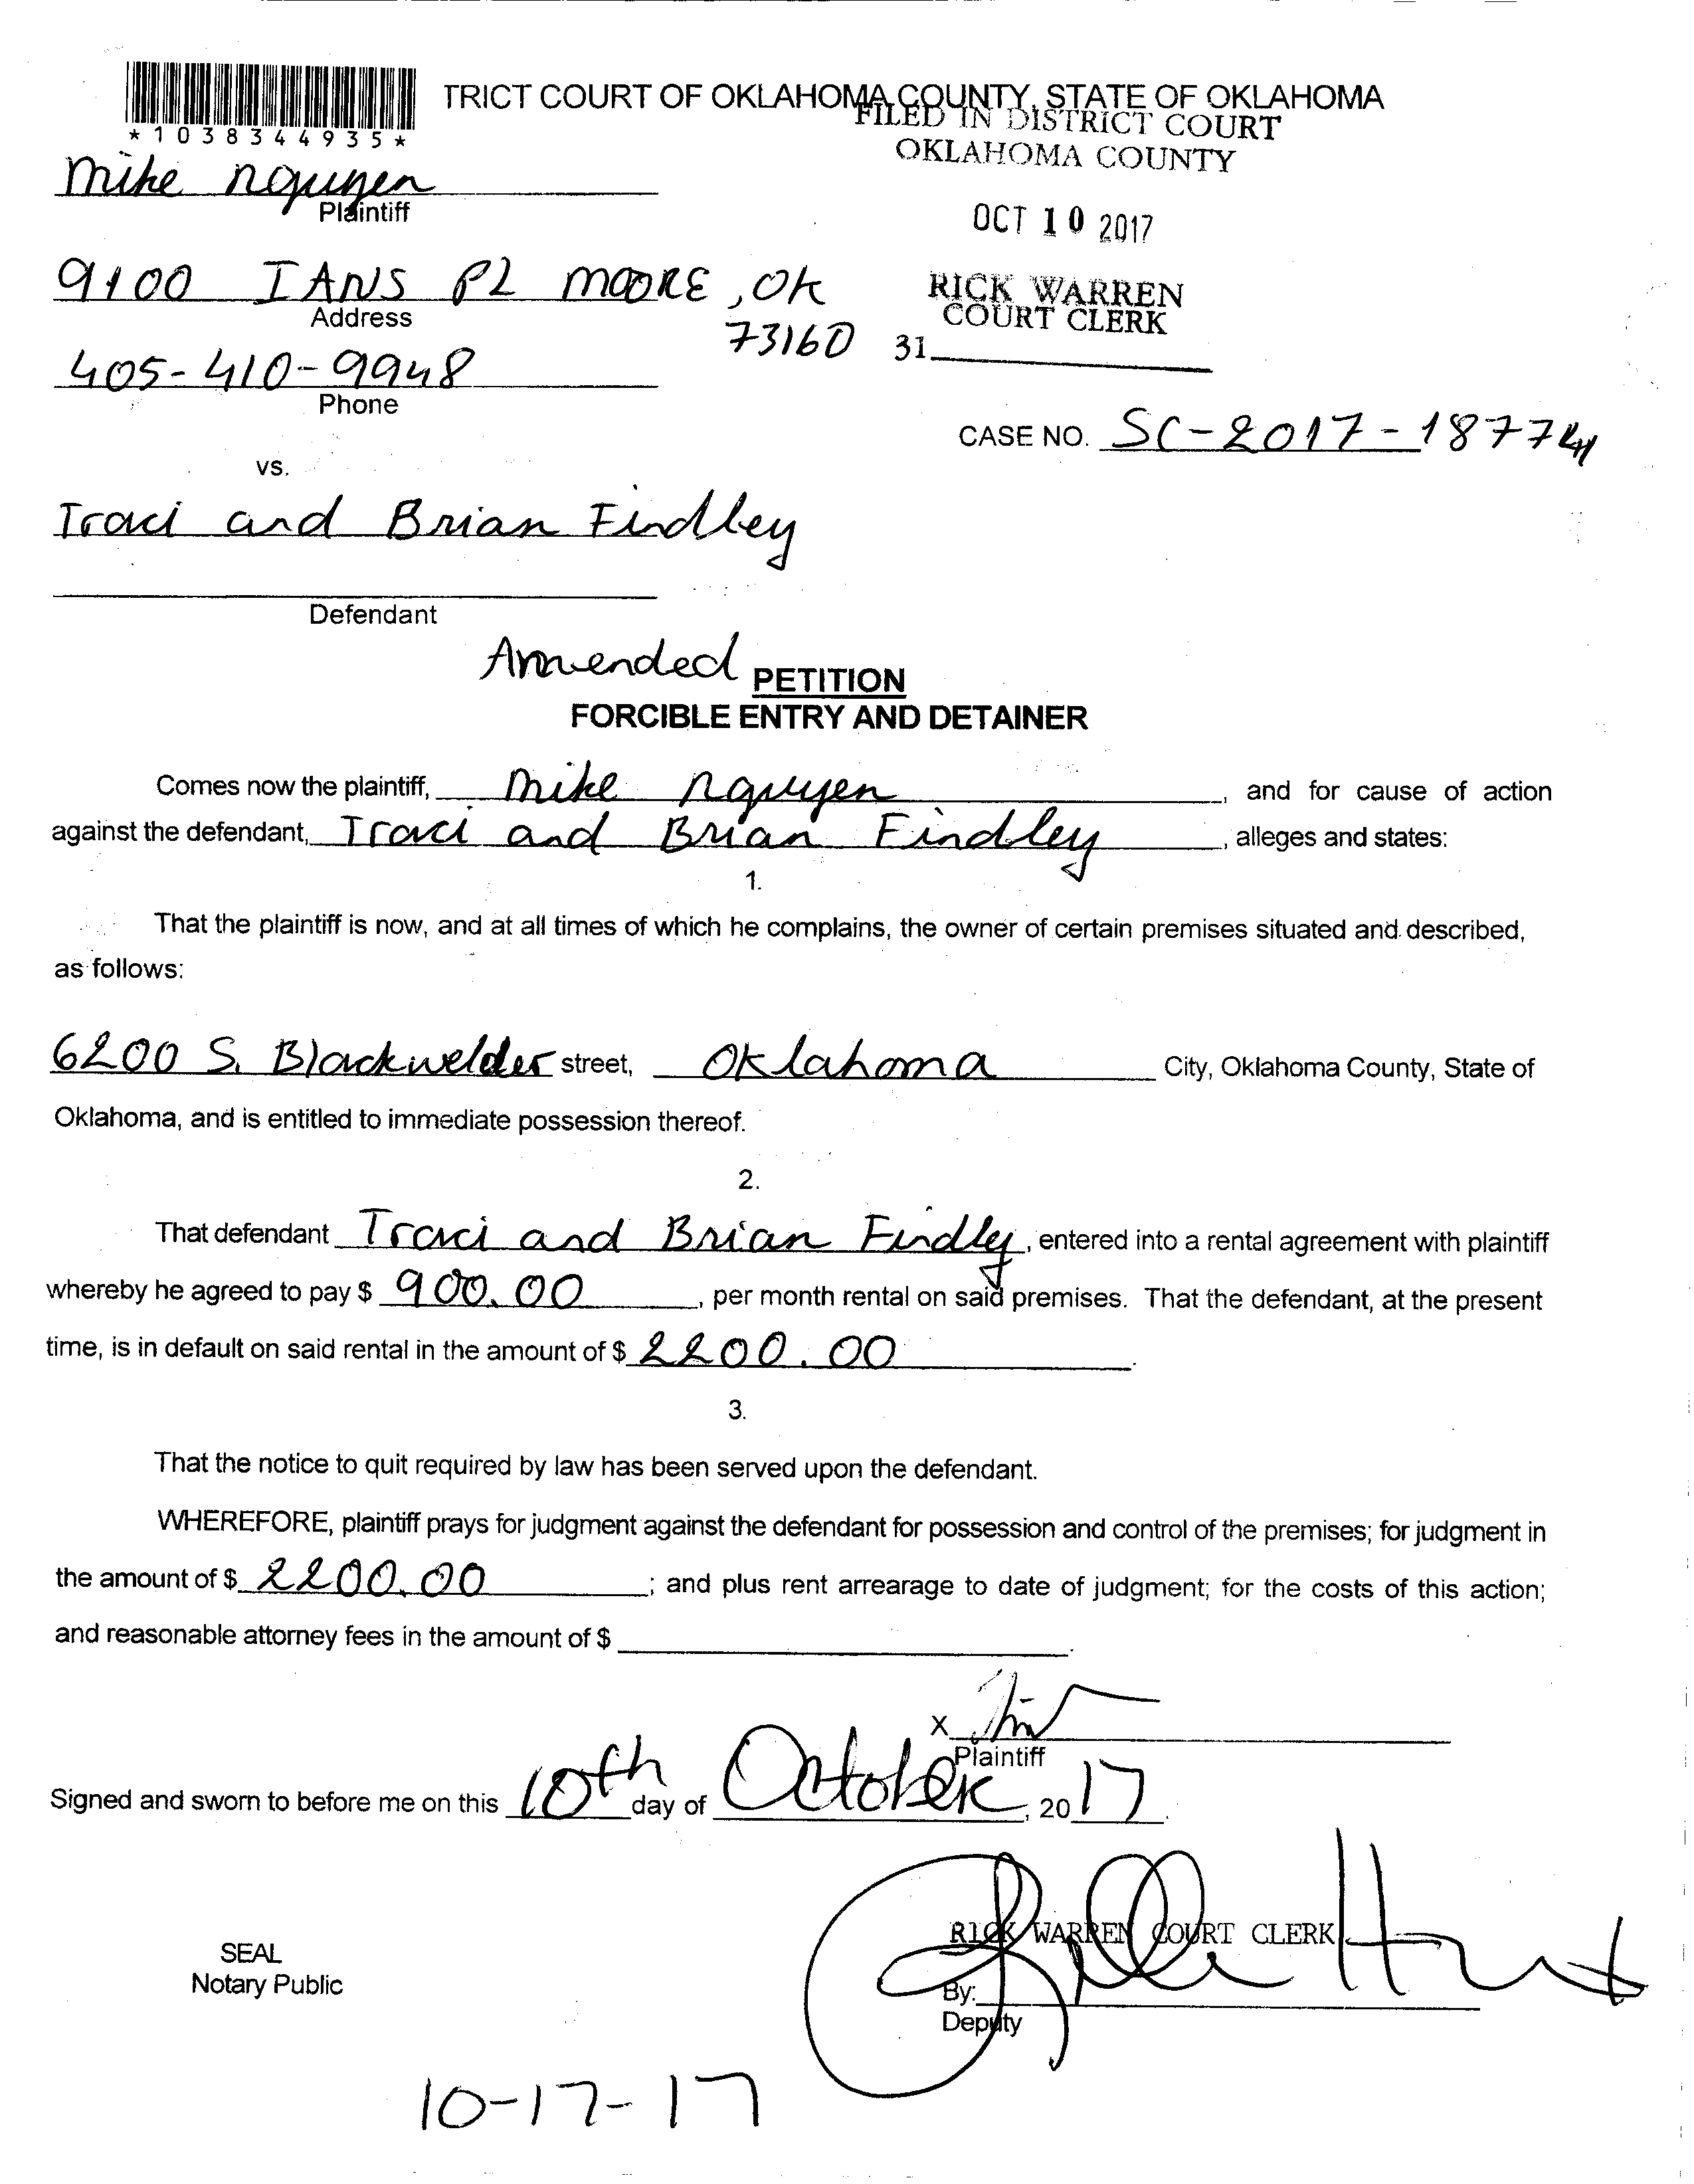 TRICT COURT OF OKLAHOMA COUNTY, STATE OF OKLAHOMA
FILED IN DISTRICT COURT
OKLAHOMA COUNTY
*1038344935*
mike nguyen
Plaintiff
OCT 10 2017
9100 IANS PL MOORE, OK
Address
73160
RICK WARREN
COURT CLERK
31
405-410-9948
Phone
CASE NO. SC-2017-18774
vs.
Traci and Brian Findley
Defendant
Amended PETITION
FORCIBLE ENTRY AND DETAINER
Comes now the plaintiff, mike nguyen, and for cause of action
against the defendant, Traci and Brian Findley, alleges and states:
1.
That the plaintiff is now, and at all times of which he complains, the owner of certain premises situated and described,
as follows:
6200 S. Blackwelder street, Oklahoma City, Oklahoma County, State of
Oklahoma, and is entitled to immediate possession thereof.
2.
That defendant Traci and Brian Findley, entered into a rental agreement with plaintiff
whereby he agreed to pay $ 900.00, per month rental on said premises. That the defendant, at the present
time, is in default on said rental in the amount of $ 2200.00.
3.
That the notice to quit required by law has been served upon the defendant.
WHEREFORE, plaintiff prays for judgment against the defendant for possession and control of the premises; for judgment in
the amount of $ 2200.00; and plus rent arrearage to date of judgment; for the costs of this action;
and reasonable attorney fees in the amount of $.
X
Plaintiff
Signed and sworn to before me on this 10th day of October, 2017.
RICK WARREN COURT CLERK
SEAL
Notary Public
By:
Deputy
10-17-17